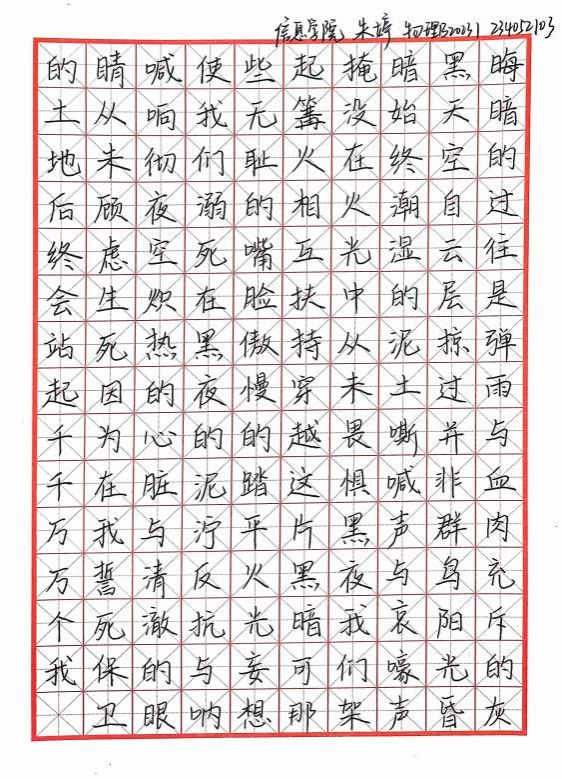 信息学院 朱婷 物理B20231 234052103
晦暗的过往是弹雨与血肉充斥的灰
黑天空自云层掠过并非群鸟阳光昏
暗始终潮湿的泥土嘶喊声与哀嚎声
掩没在火光中从未畏惧黑夜我们架
起篝火相互扶持穿越这片黑暗可那
些无耻的嘴脸傲慢的踏平火光妄想
使我们溺死在黑夜的泥泞反抗与呐
喊响彻夜空炽热的心脏与清澈的眼
睛从未顾虑生死因为在我誓死保卫
的土地后终会站起千千万万个我